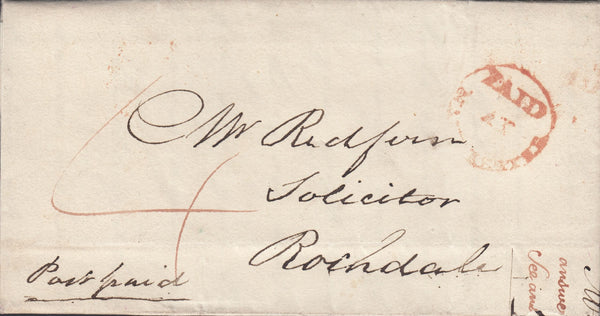 PAID
AT
4
Mr Redfern
Solicitor
Rochdale
Post paid
answe
See ans